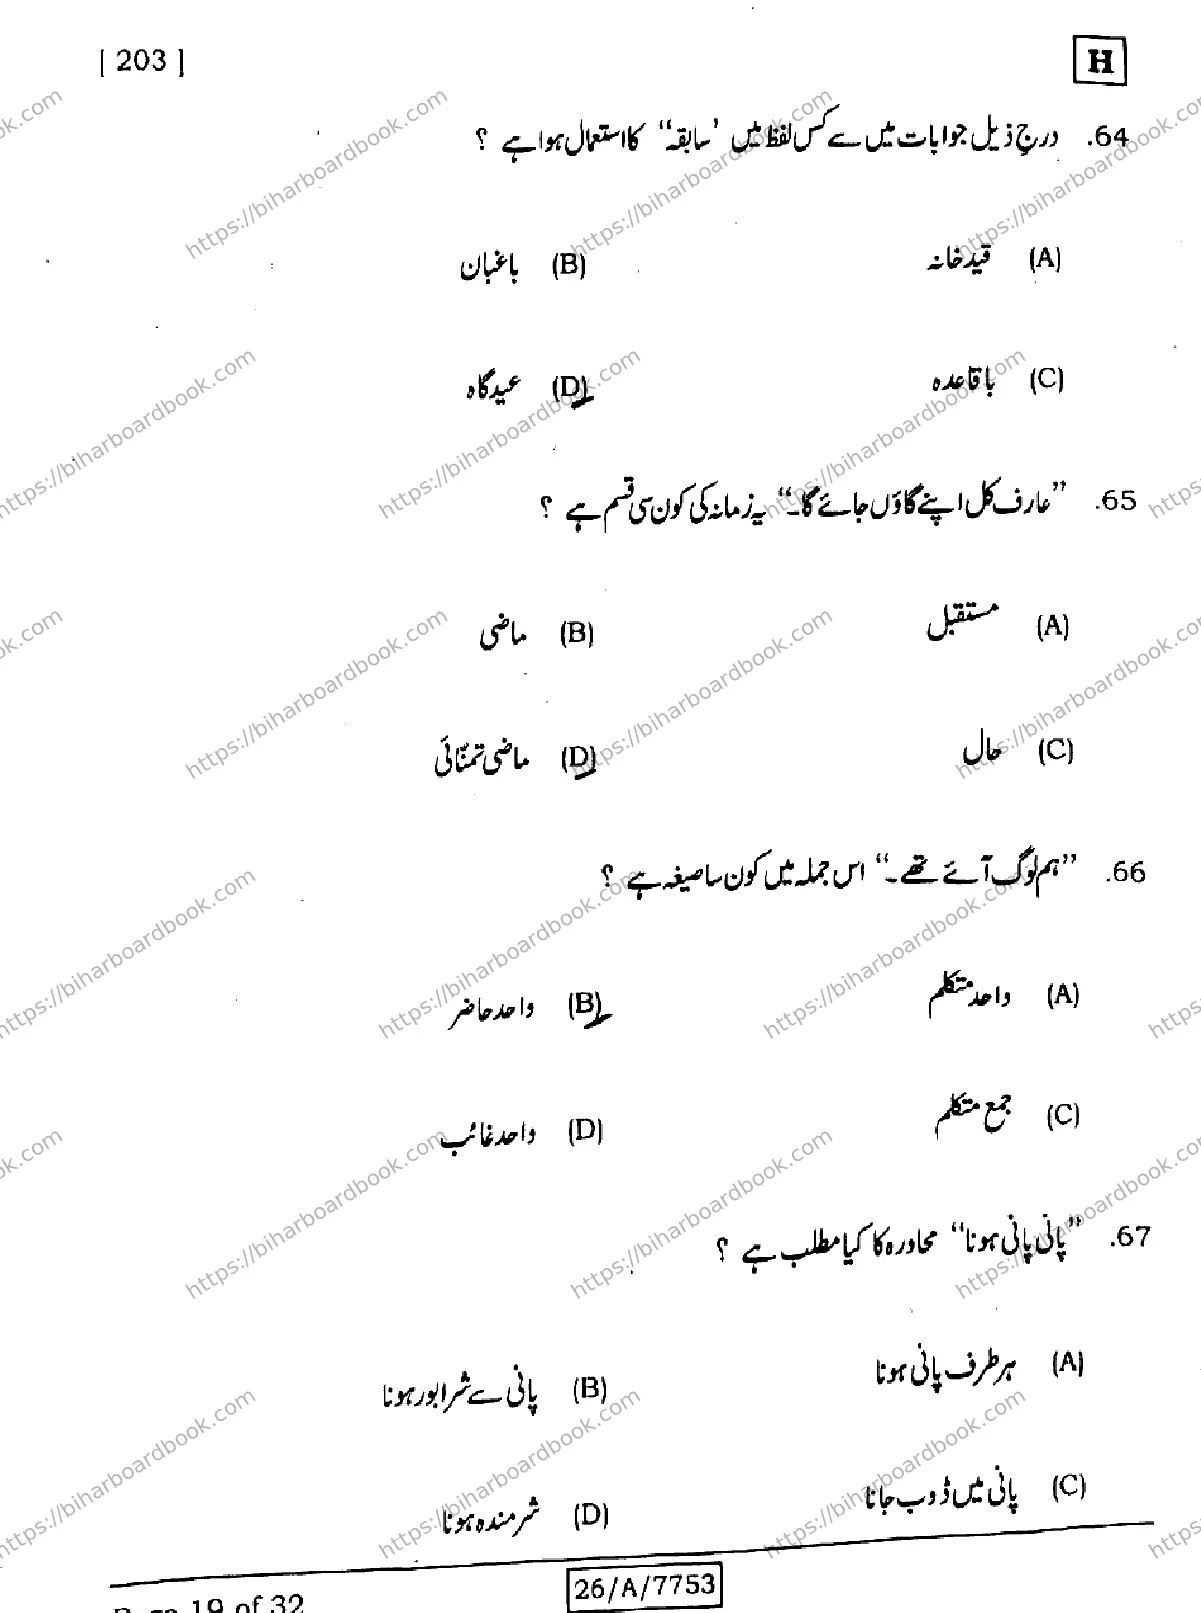 [ 203 ] H
64. درج ذیل جوابات میں سے کس لفظ میں ’سابقہ‘‘ کا استعمال ہوا ہے ؟
(A) قید خانہ (B) باغبان
(C) باقاعدہ (D) عید گاہ
65. ’’عارف کل اپنے گاؤں جائے گا۔‘‘ یہ زمانہ کی کون سی قسم ہے ؟
(A) مستقبل (B) ماضی
(C) حال (D) ماضی تمنّائی
66. ’’ہم لوگ آئے تھے۔‘‘ اس جملہ میں کون سا صیغہ ہے ؟
(A) واحد متکلم (B) واحد حاضر
(C) جمع متکلم (D) واحد غائب
67. ’’پانی پانی ہونا‘‘ محاورہ کا کیا مطلب ہے ؟
(A) ہر طرف پانی ہونا (B) پانی سے شرابور ہونا
(C) پانی میں ڈوب جانا (D) شرمندہ ہونا
Page 19 of 32 26/A/7753
https://biharboardbook.com